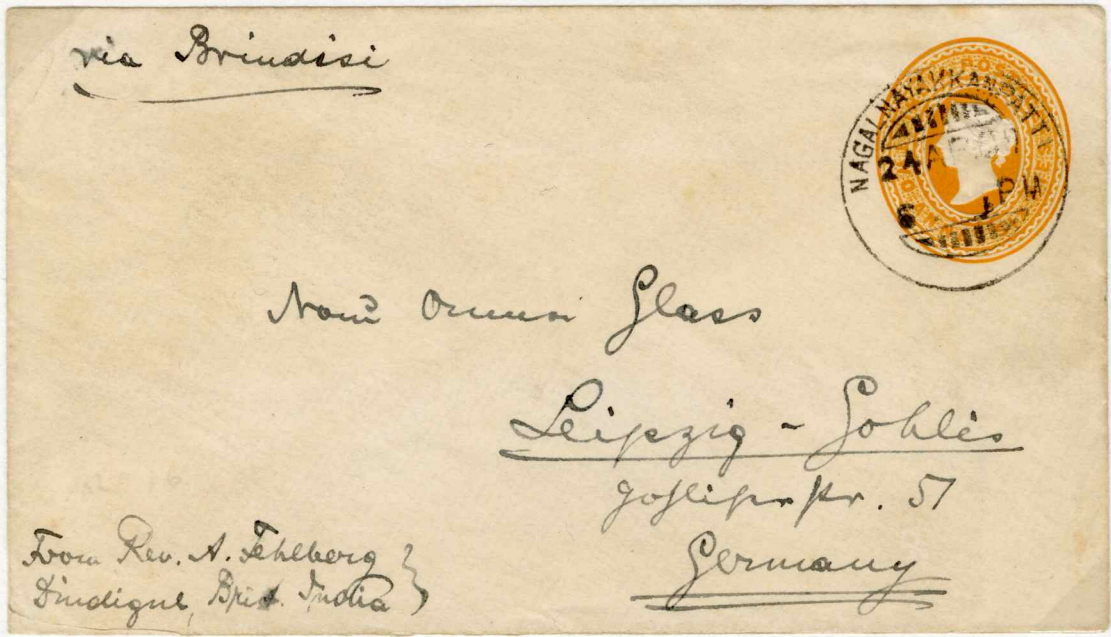 via Brindisi
NAGALNAYAKKANPATTI
24 AP
6 PM
Glass
Leipzig - Gohlis
str. 51
Germany
From Rev. A. Fehlberg
Dindigul, Brit. India